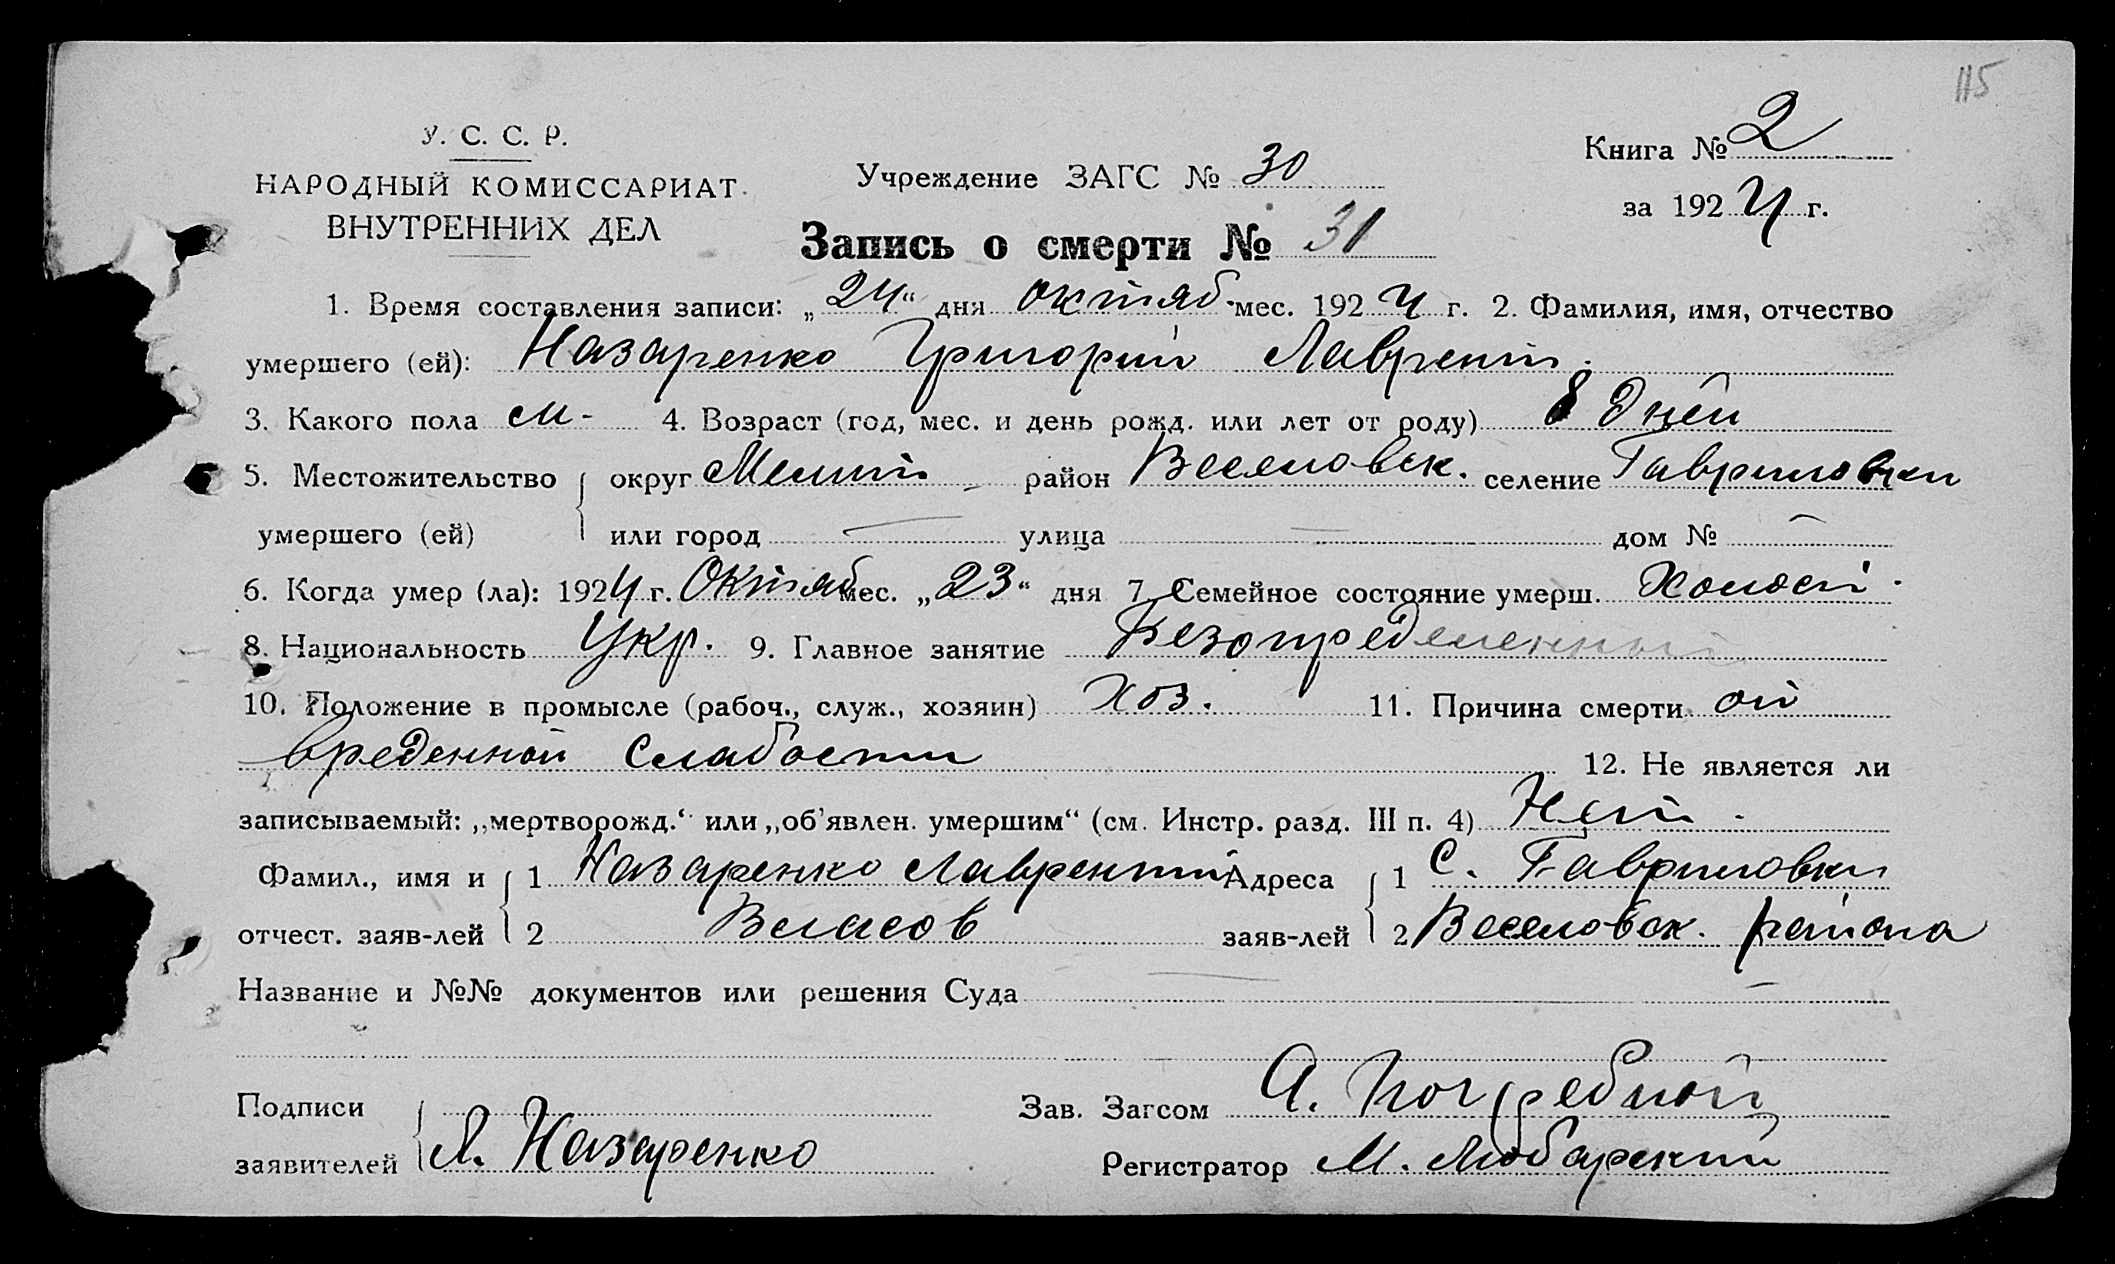 115
У. С. С. Р.
НАРОДНЫЙ КОМИССАРИАТ
ВНУТРЕННИХ ДЕЛ
Учреждение ЗАГС № 30
Книга № 2
за 1924 г.
Запись о смерти № 31
1. Время составления записи: „24“ дня октяб. мес. 1924 г. 2. Фамилия, имя, отчество
умершего (ей): Назаренко Григорий Лаврент.
3. Какого пола м- 4. Возраст (год, мес. и день рожд. или лет от роду) 8 дней
5. Местожительство округ Мелит район Веселовск. селение Гавриловки
умершего (ей) или город — улица — дом № —
6. Когда умер (ла): 1924 г. Октяб мес. „23“ дня 7. Семейное состояние умерш. Холост.
8. Национальность Укр. 9. Главное занятие Безопределенный
10. Положение в промысле (рабоч., служ., хозяин) хоз. 11. Причина смерти от
вреденной слабости
12. Не является ли
записываемый: „мертворожд.“ или „об'явлен. умершим“ (см. Инстр. разд. III п. 4) Нет.
Фамил., имя и 1 Назаренко Лаврентий Адреса 1 с. Гавриловки
отчест. заяв-лей 2 Власов заяв-лей 2 Веселовск. района
Название и №№ документов или решения Суда — —
Подписи Зав. Загсом А. Погребной
заявителей Л. Назаренко Регистратор М. Любарский